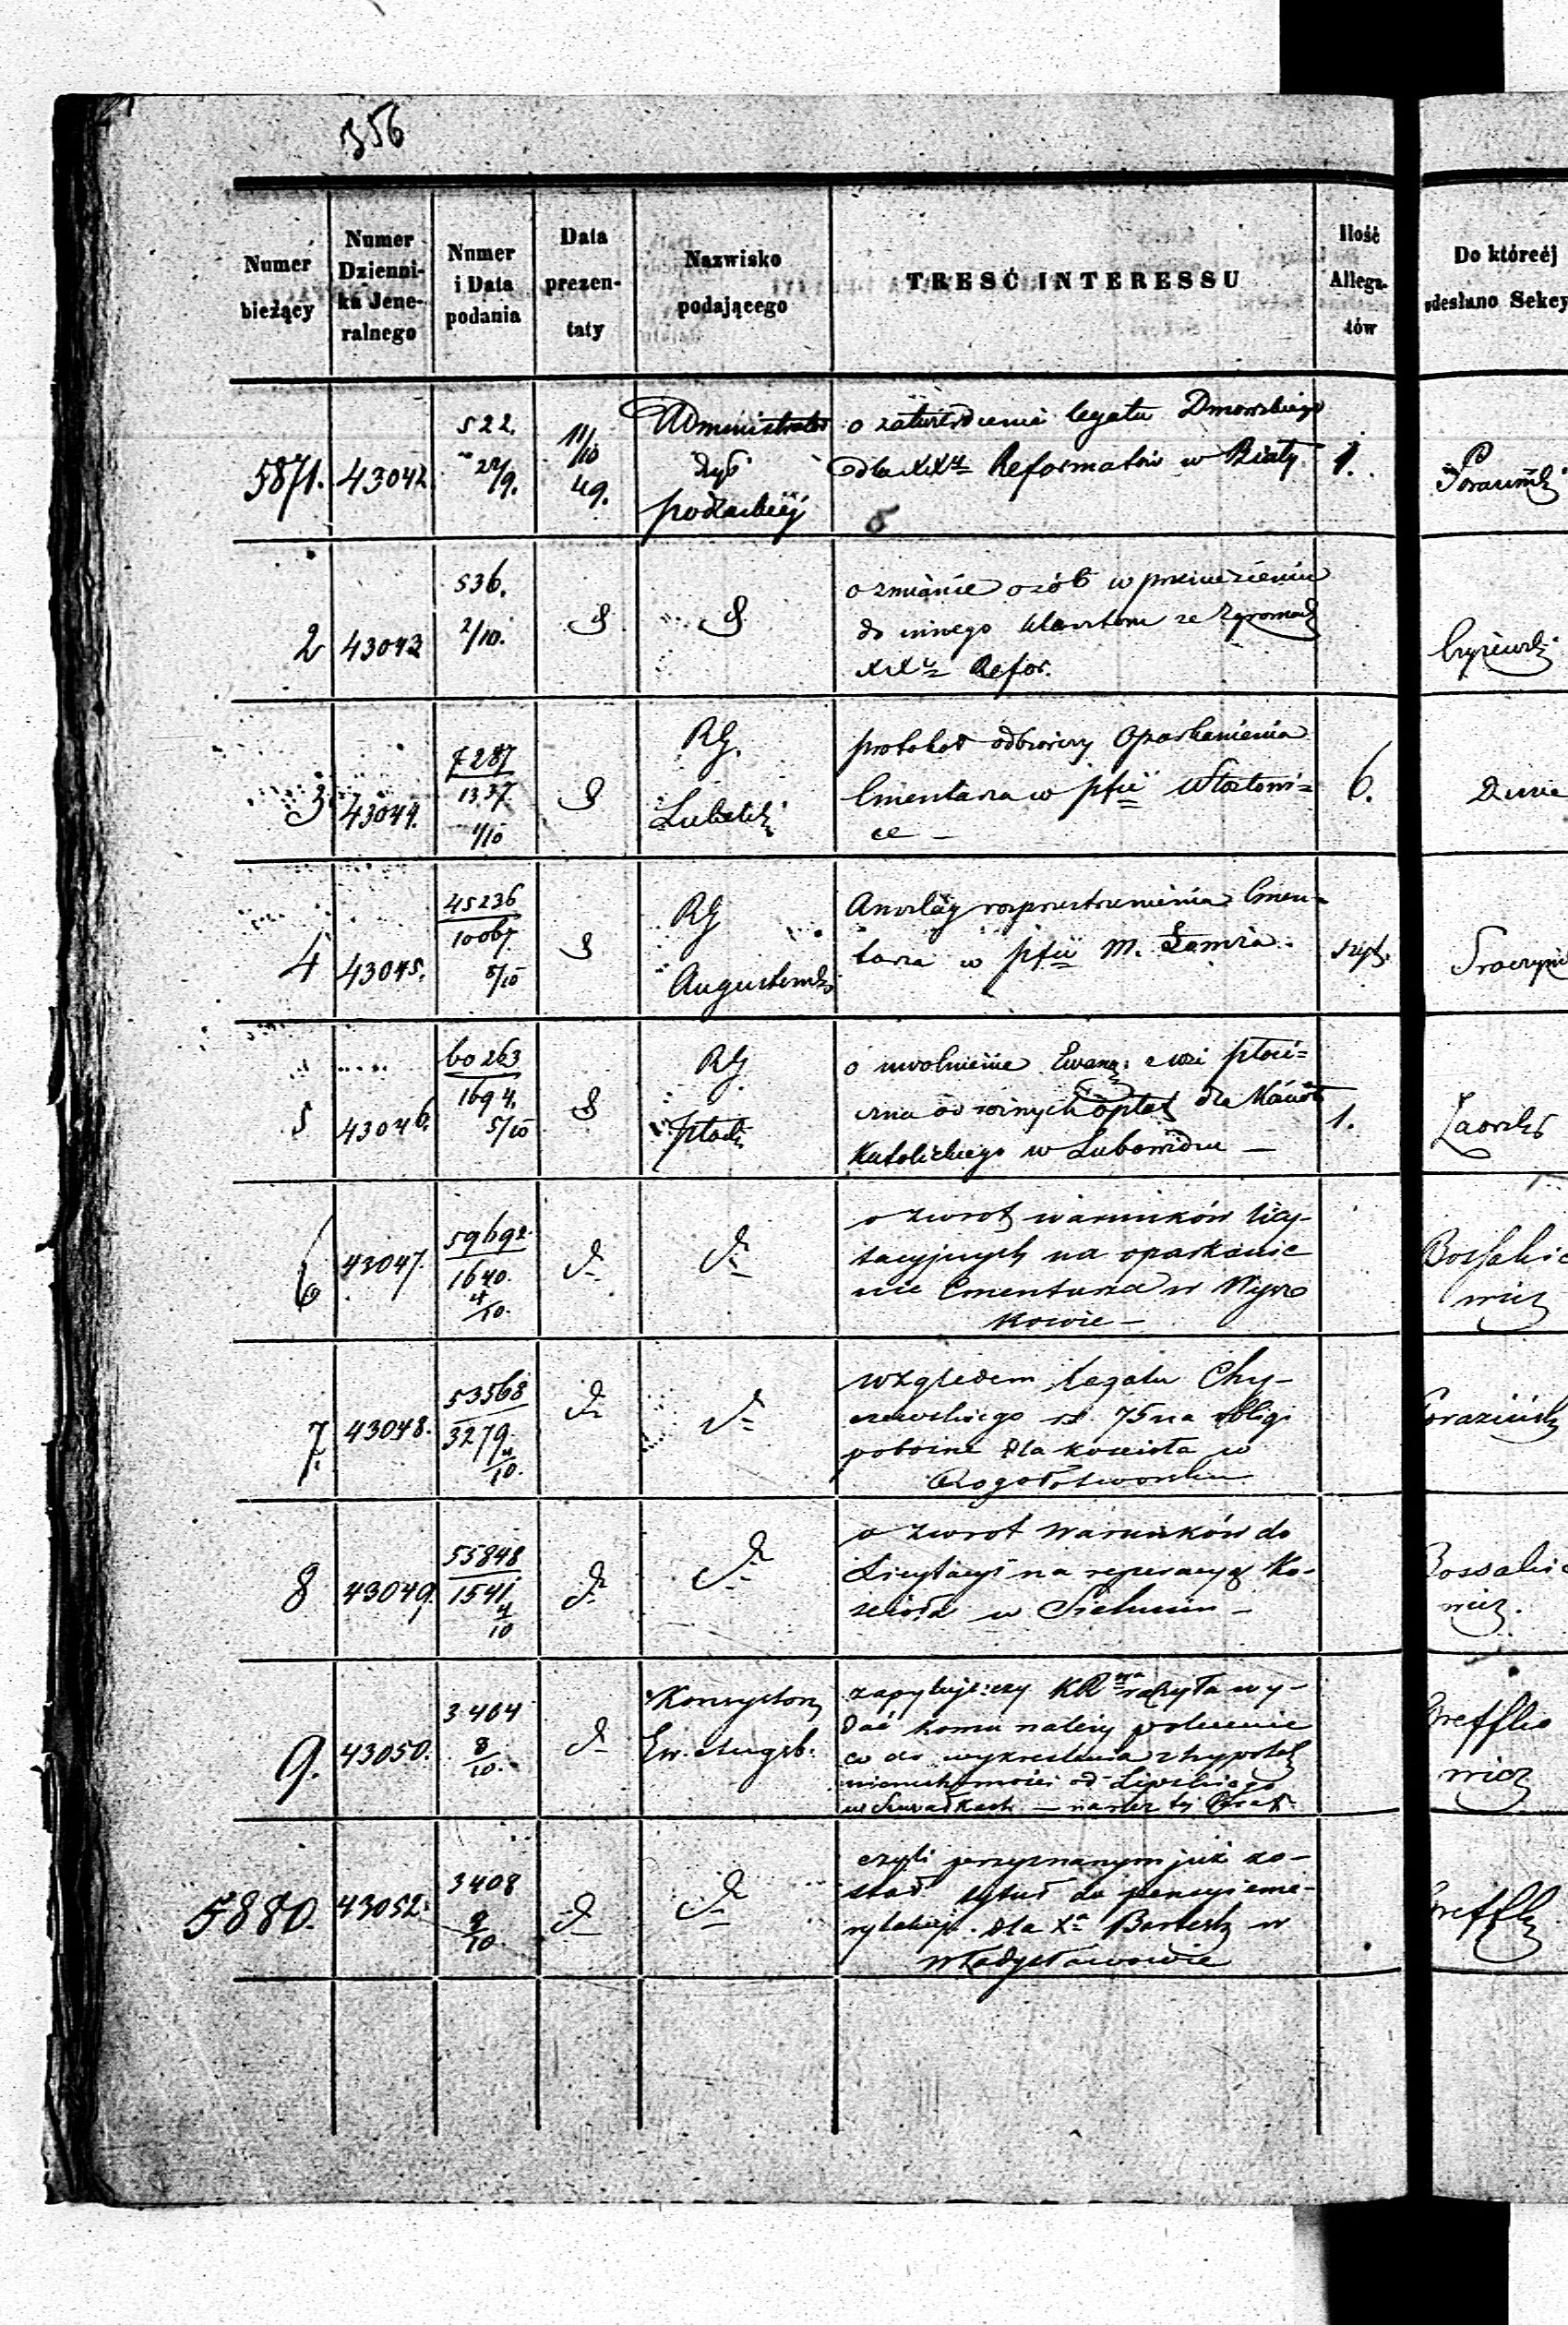 356
Numer bieżący
Numer Dzienni-ka Jene-ralnego
Numer i Data podania
Data prezen-taty
Nazwisko podającego
TREŚĆ INTERESSU
Ilość Allega-tów
Do któreéj odesłano Sekcy
5871. 43042 522. 22/9. 11/10 49. Administrator dyć podlaskiéj
o zatwierdzenie legatu Dmowskiego
dla XX Reformatów w Biały 1.
2 43043 536. 2/10.
o zmianie osób w przeniesieniu
do innego klasztoru ze Zgromadz
XX Refor.
3 43044. 7287 1337 1/10 RG. Lubelski
protokół odbiorczy Oparkanienia
Cmentarza w pfii Włostowi=
ce — 6.
4 43045. 45236 10067 8/10 RG Augustowski
Anszlag rozprzestrzenienia Cmen=
tarza w pfii M. Łomża
5 43046. 60263 1694. 5/10 RG. Płocki
o uwolnienie Ewang: z wsi
od różnych opłat dla Kościoła
Katolickiego w Lubowidzu — 1.
Zaorski
6 43047. 59692 1640. 4/10. d
o zwrot warunków licy-
tacyjnych na oparkanie
nie Cmentarza w Wyszo
kowie —
7. 43048. 53568 3279. 4/10. d
względem legatu Chy-
czewskiego rs. 75 na obligi
pobożne dla kościoła w
8 43049. 55848 1541 4/10 d
o zwrot warunków do
Licytacyi na reperacyą Ko-
ścioła w —
9. 43050. 3404 8/10. d Konsystorz Ew. Augsb.
zapytuje: czy KR raczyła wy-
dać komu należy polecenie
co do wykreślenia z hypoteki
nieruchomości od Lipskiego
w Suwałkach —
5880. 43052. 3408 9/10. d
czyli przyznanym już zo-
stał tytuł do pensyi eme-
rytalnéj dla Xa w
Władysławowie